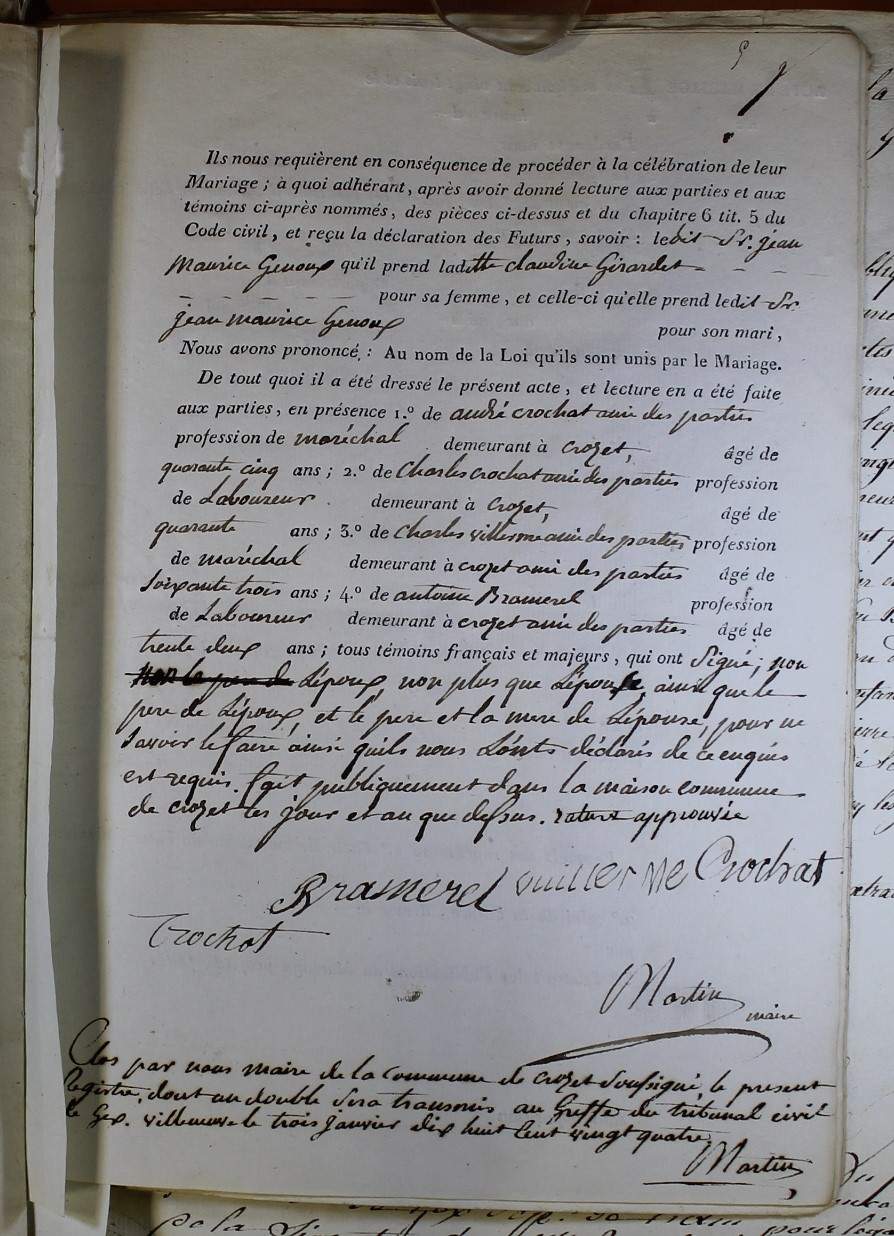 Ils nous requièrent en conséquence de procéder à la célébration de leur
Mariage ; à quoi adhérant, après avoir donné lecture aux parties et aux
témoins ci-après nommés, des pièces ci-dessus et du chapitre 6 tit. 5 du
Code civil, et reçu la déclaration des Futurs, savoir : ledit Sr. jean
Maurice Genoux qu'il prend laditte claudine Girardet
pour sa femme, et celle-ci qu'elle prend ledit Sr.
jean maurice Genoux pour son mari,
Nous avons prononcé : Au nom de la Loi qu'ils sont unis par le Mariage.
De tout quoi il a été dressé le présent acte, et lecture en a été faite
aux parties, en présence 1.º de andré crochat ami des parties
profession de maréchal demeurant à crozet, âgé de
quarante cinq ans ; 2.º de Charles crochat ami des parties profession
de Laboureur demeurant à crozet, âgé de
quarante ans ; 3.º de Charles villerme ami des parties profession
de maréchal demeurant à crozet ami des parties âgé de
soixante trois ans ; 4.º de antoine Bramerel profession
de Laboureur demeurant à crozet ami des parties âgé de
trente deux ans ; tous témoins français et majeurs, qui ont Signé ; non
non le pere de Lépoux, non plus que Lépouse, ainsi que le
pere de Lépoux, et le pere et la mere de Lépouse, pour ne
savoir le faire ainsi quils nous Lonts déclarés de ce enquis
est requis. fait publiquement dans la maison commune
de crozet les jour et an que dessus. rature approuvée
Bramerel vuillerme Crochat
Crochat
Martin
maire
Clos par nous maire de la commune de crozet soussigné, le present
registre, dont un double sera transmis au Greffe du tribunal civil
de Gex. villeneuve le trois janvier dix huit cent vingt quatre
Martin